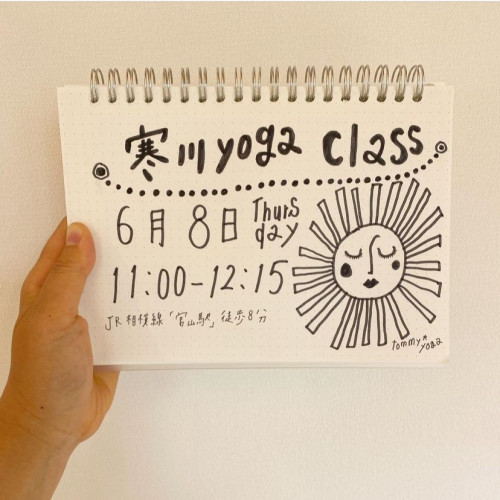 寒川yoga class
6月8日 Thursday
11:00-12:15
JR相模線「宮山駅」徒歩8分
tommy*yoga